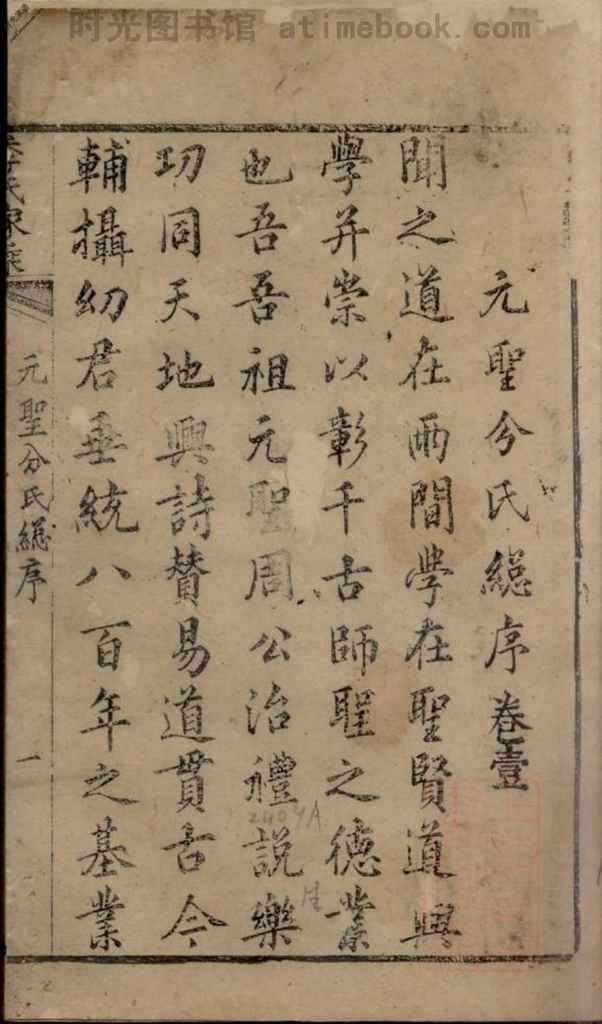 时光图书馆 atimebook.com
元聖分氏緫序卷壹
聞之道在兩間學在聖賢道與
學并崇以彰千古師聖之德業
也吾吾祖元聖周公治禮說樂
功同天地興詩賛易道貫古今
輔攝幼君垂統八百年之基業
氏家乘
元聖分氏緫序
一
2404A